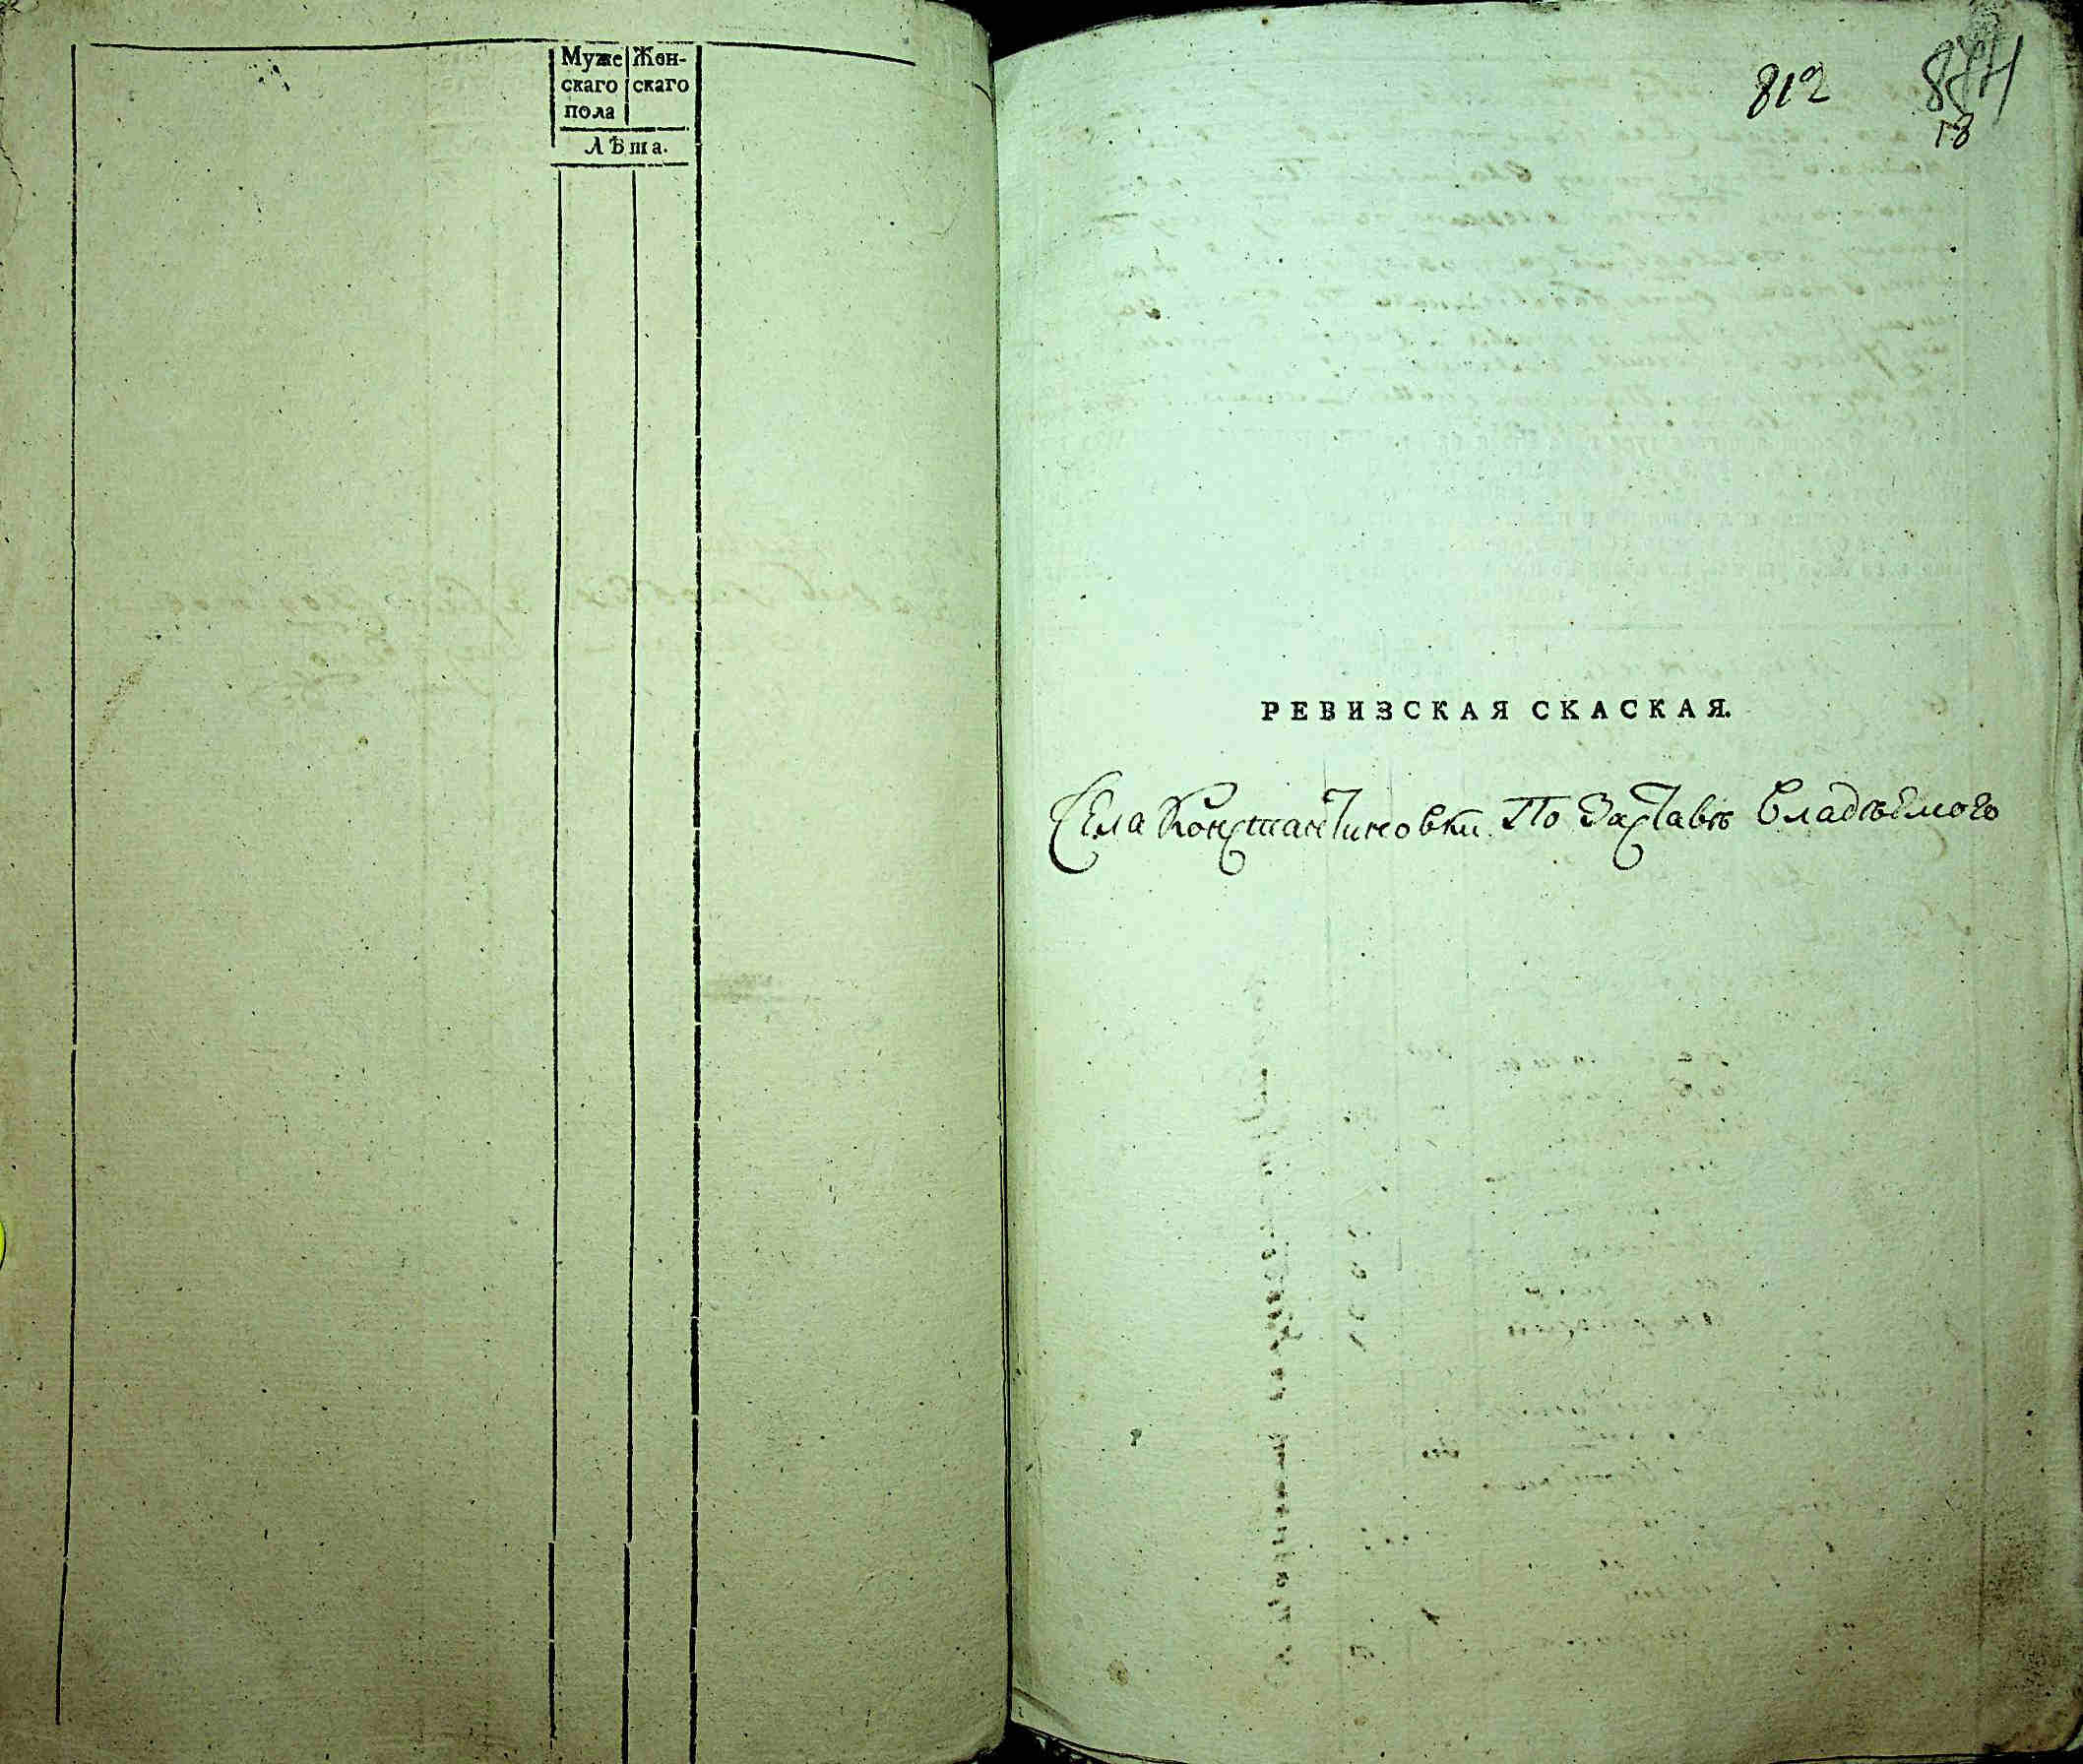 Муже Жен-
скаго скаго
пола
Лѣта.
812
18
РЕВИЗСКАЯ СКАСКАЯ.
Села Константиновки По Заставѣ Владѣемого